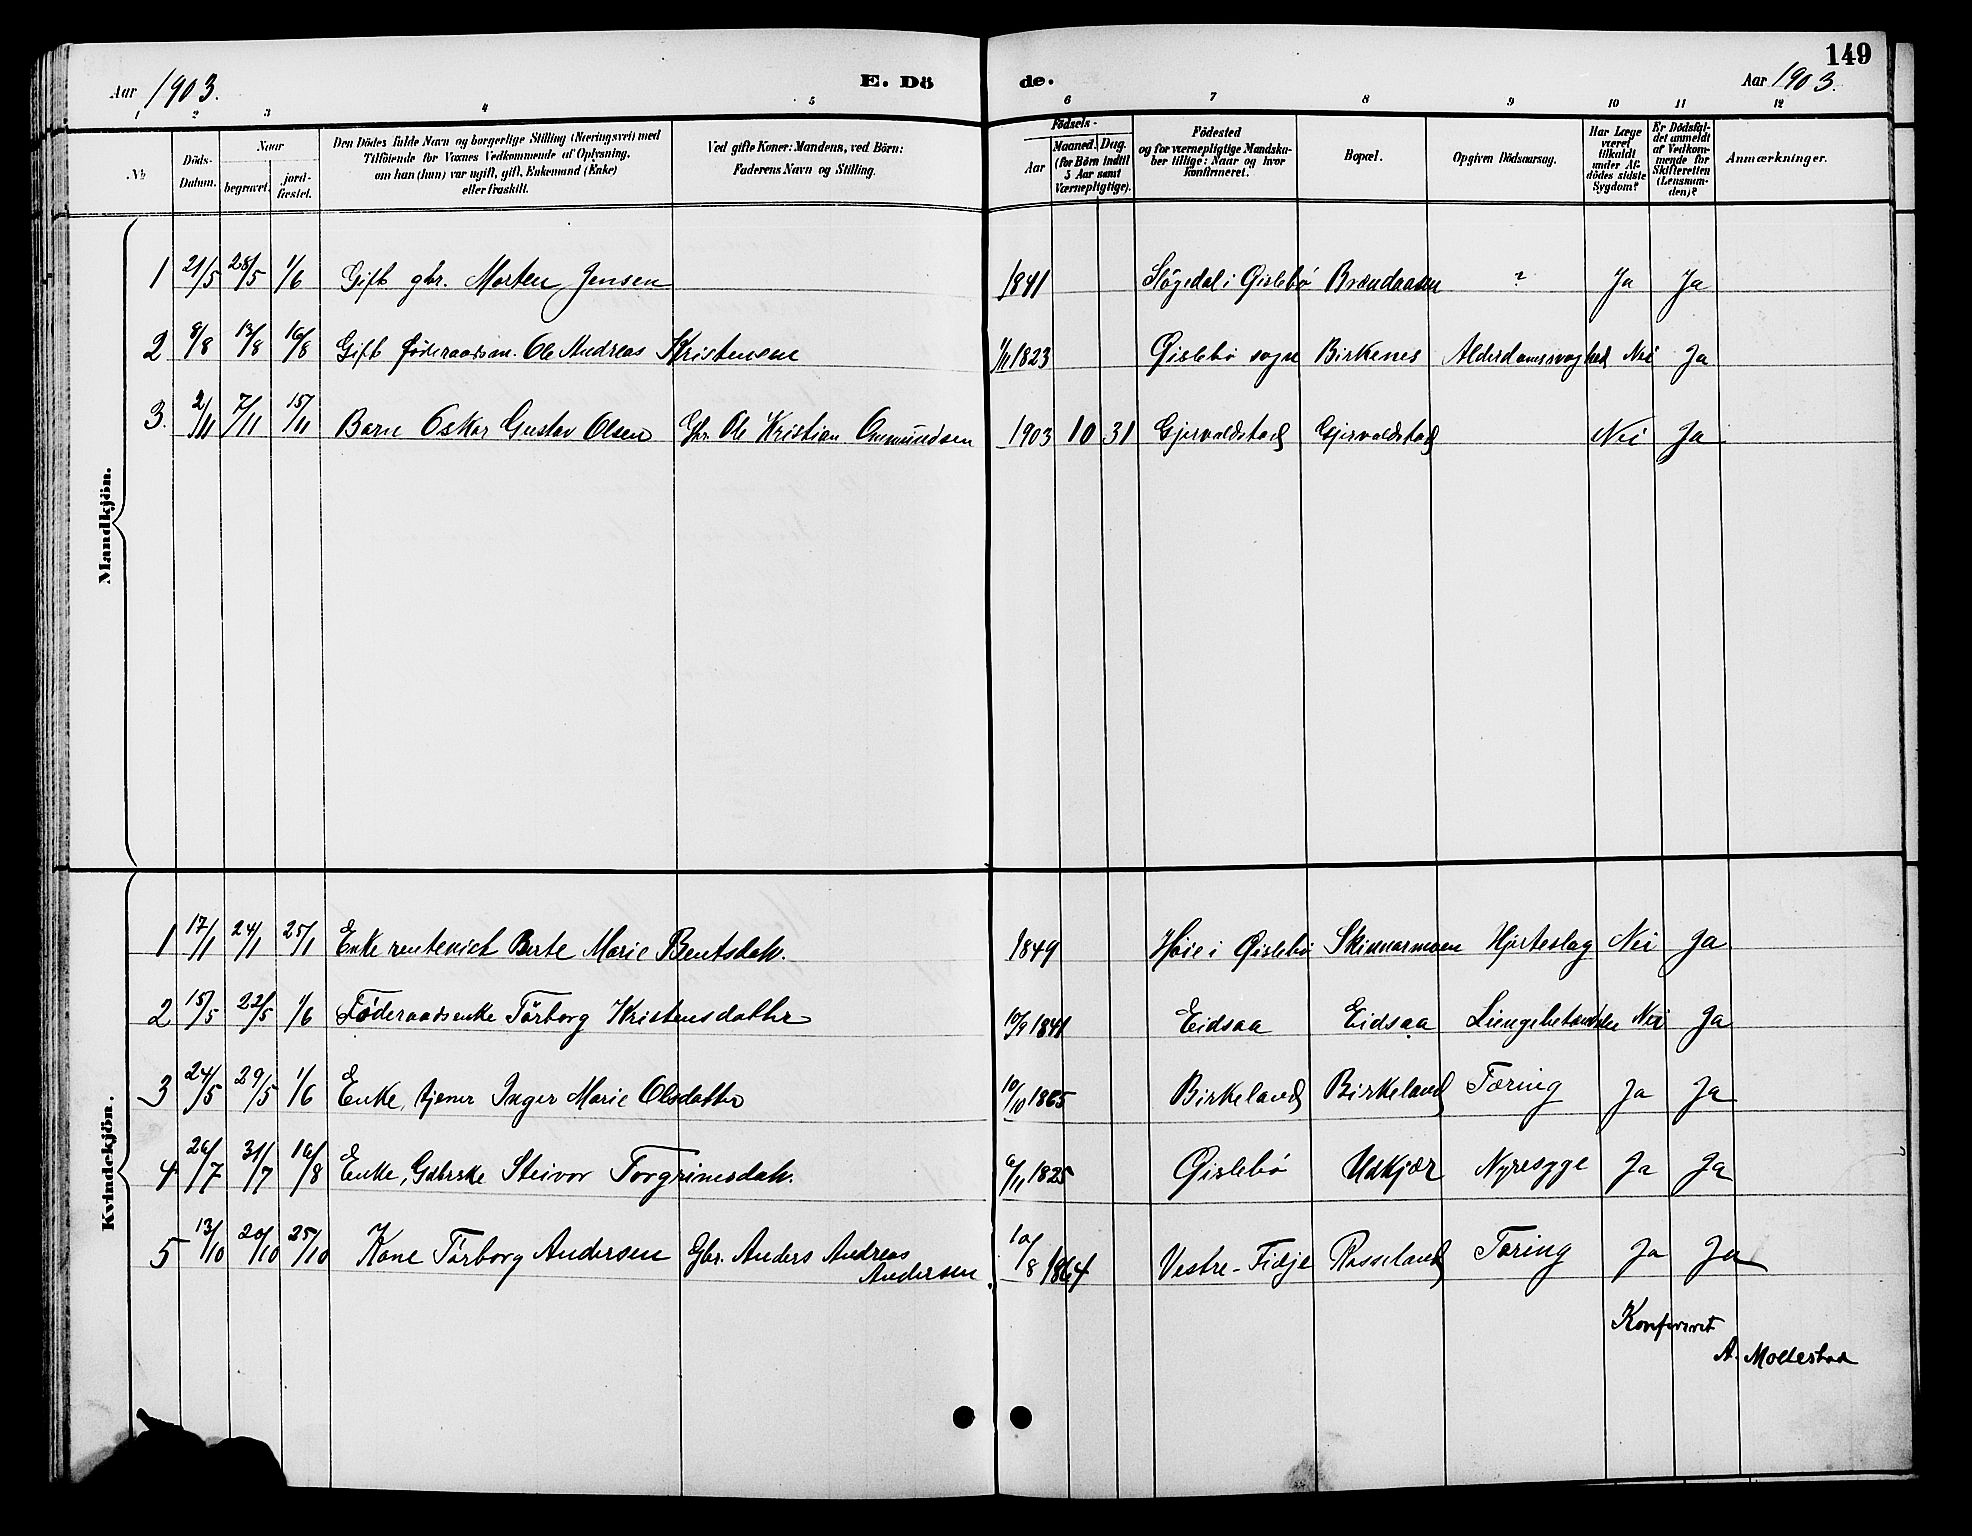 149
Aar 1903. E. Dö de. Aar 1903.
1 2 3 4 5 6 7 8 9 10 11 12
No.
Döds-
Datum.
Naar
begravet.
jord-
fæstet.
Den Dödes fulde Navn og borgerlige Stilling (Næringsvei) med
Tilföiende for Voxnes Vedkommende af Oplysning,
om han (hun) var ugift, gift, Enkemand (Enke)
eller fraskilt.
Ved gifte Koner: Mandens, ved Börn:
Faderens Navn og Stilling.
Födsels-
Aar
Maaned. Dag.
(for Börn indtil
5 Aar samt
Værnepligtige).
Födested
og for værnepligtige Mandska-
ber tillige: Naar og hvor
konfirmeret.
Bopæl.
Opgiven Dödsaarsag.
Har Læge
været
tilkaldt
under Af-
dödes sidste
Sygdom?
Er Dödsfal-
det anmeldt
af Vedkom-
mende for
Skifteretten
(Lensman-
den)?
Anmærkninger.
Mandkjön.
1 21/5 28/5 1/6 Gift gbr. Morten Jensen 1841 Stögedal i Øislebø Brændaasen ? Ja Ja
2 8/8 13/8 16/8 Gift Føderaadsm. Ole Andreas Kristensen 1/11 1823 Øislebø sogn Birkenes Alderdomssvaghed Nei Ja
3. 2/11 7/11 15/11 Barn Oskar Gustav Olsen Gbr. Ole Kristian Ommundsen 1903 10 31 Gjervoldstad Gjervoldstad Nei Ja
Kvindekjön.
1 17/1 24/1 25/1 Enke rentenict Berte Marie Bentsdatr. 1849 Høie i Øislebø Skinnarmoen Hjerteslag Nei Ja
2 15/5 22/5 1/6 Føderaadsenke Tørborg Kristensdatter 10/9 1841 Eidsaa Eidsaa Lungebetændelse Nei Ja
3 24/5 29/5 1/6 Enke, tjener Inger Marie Olsdatter 10/10 1865 Birkeland Birkeland Tæring Ja Ja
4 26/7 31/7 16/8 Enke, Gdbrske Steivor Torgrimsdatr. 6/11 1825 Øislebø Udkjær Nyresyge Ja Ja
5 13/10 20/10 25/10 Kone Tørborg Andersen Gbr. Anders Andreas 10/8 1864 Vestre-Fidje Rosseland Tæring Ja Ja
Andersen
Konfereret
A. Mollestad